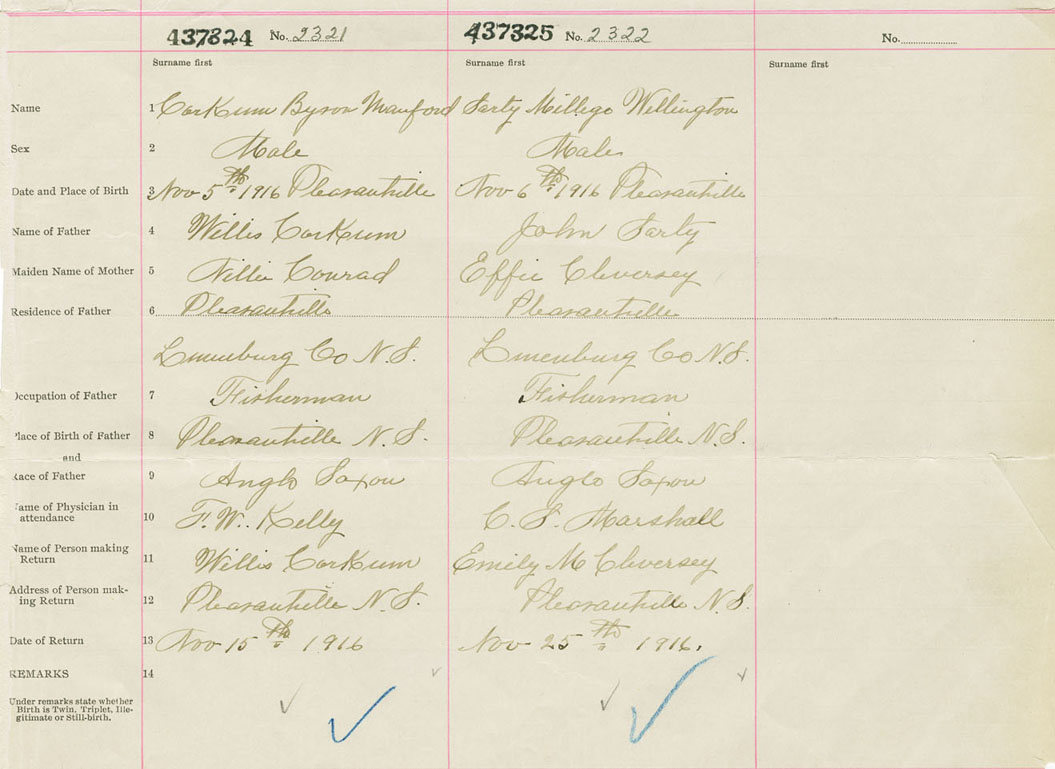 437324 No. 2321 437325 No. 2322 No.
Surname first Surname first Surname first
Name 1 Corkum Byron Manford Sarty Millego Wellington
Sex 2 Male Male
Date and Place of Birth 3 Nov 5th 1916 Pleasantville Nov 6th 1916 Pleasantville
Name of Father 4 Willis Corkum John Sarty
Maiden Name of Mother 5 Nillie Conrad Effie Cleversey
Residence of Father 6 Pleasantville Pleasantville
Lunenburg Co N.S. Lunenburg Co N.S.
Occupation of Father 7 Fisherman Fisherman
Place of Birth of Father 8 Pleasantville N.S. Pleasantville N.S.
and
Race of Father 9 Anglo Saxon Anglo Saxon
Name of Physician in
attendance 10 F. W. Kelly C. S. Marshall
Name of Person making
Return 11 Willis Corkum Emily M Cleversey
Address of Person mak-
ing Return 12 Pleasantville N.S. Pleasantville N.S.
Date of Return 13 Nov 15th 1916 Nov 25th 1916.
REMARKS 14
Under remarks state whether
Birth is Twin, Triplet, Ille-
gitimate or Still-birth.